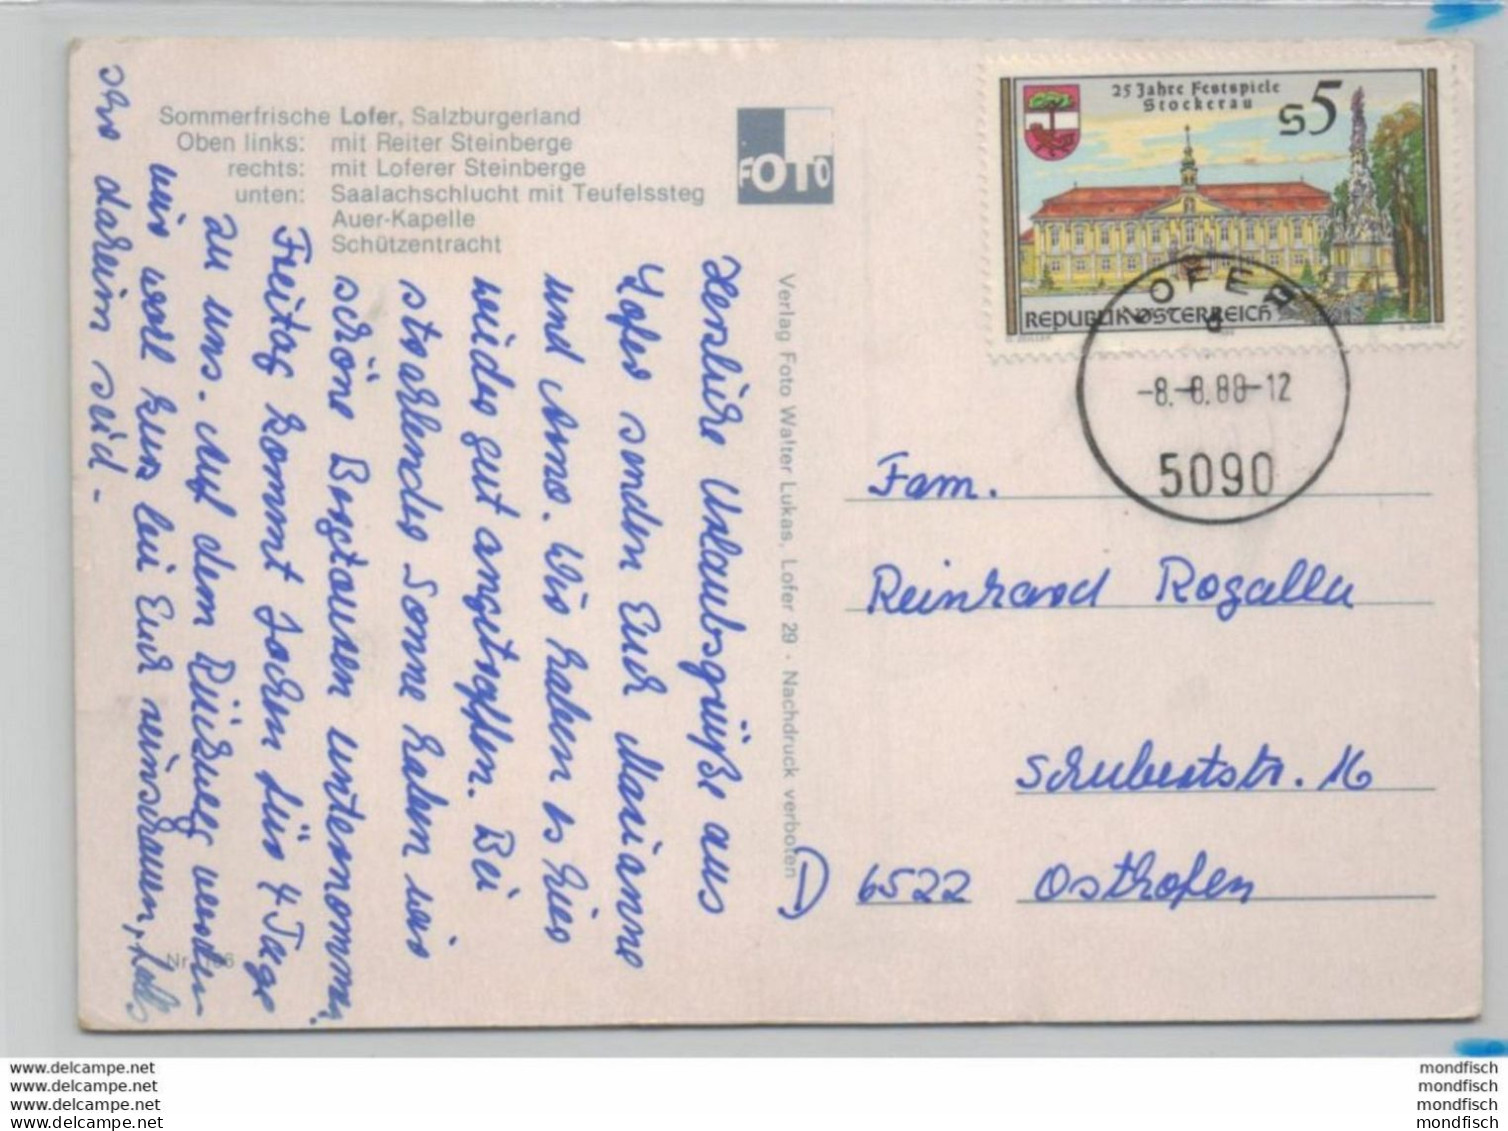 Sommerfrische Lofer, Salzburgerland
Oben links: mit Reiter Steinberge
rechts: mit Loferer Steinberge
unten: Saalachschlucht mit Teufelssteg
Auer-Kapelle
Schützentracht
FOTO
25 Jahre Festspiele
Stockerau
S5
REPUBLIK ÖSTERREICH
LOFER
-8.-8.88-12
5090
Verlag Foto Walter Lukas, Lofer 29 · Nachdruck verboten
Herzliche Urlaubsgrüße aus
Lofer senden Euch Marianne
und Arno. Wir haben es hier
wieder gut angetroffen. Bei
strahlender Sonne haben wir
schöne Bergtouren unternommen.
Freitag kommt Jochen für 4 Tage
zu uns. Auf dem Rückweg werden
wir wohl kurz bei Euch reinschauen, falls
ihr daheim seid -
Fam.
Reinhard Rogalla
Schubertstr. 16
D 6522 Osthofen
www.delcampe.net
www.delcampe.net
www.delcampe.net
www.delcampe.net
mondfisch
mondfisch
mondfisch
mondfisch